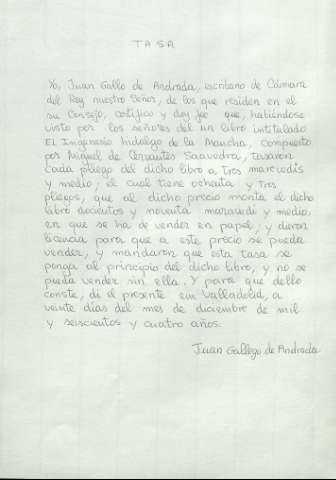 TASA
Yo, Juan Gallo de Andrada, escribano de Cámara
del Rey nuestro Señor, de los que residen en el
su Consejo, certifico y doy fee que, habiéndose
visto por los señores dél un libro intitulado
El Ingenioso hidalgo de la Mancha, compuesto
por Miguel de Cervantes Saavedra, tasaron
cada pliego del dicho libro a tres maravedís
y medio; el cual tiene ochenta y tres
pliegos, que al dicho precio monta el dicho
libro docientos y noventa maravedí y medio,
en que se ha de vender en papel, y dieron
licencia para que a este precio se pueda
vender, y mandaron que esta tasa se
ponga al principio del dicho libro, y no se
pueda vender sin ella. Y para que dello
conste, di el presente em Valladolid, a
veinte días del mes de diciembre de mil
y seiscientos y cuatro años.
Juan Gallego de Andrada